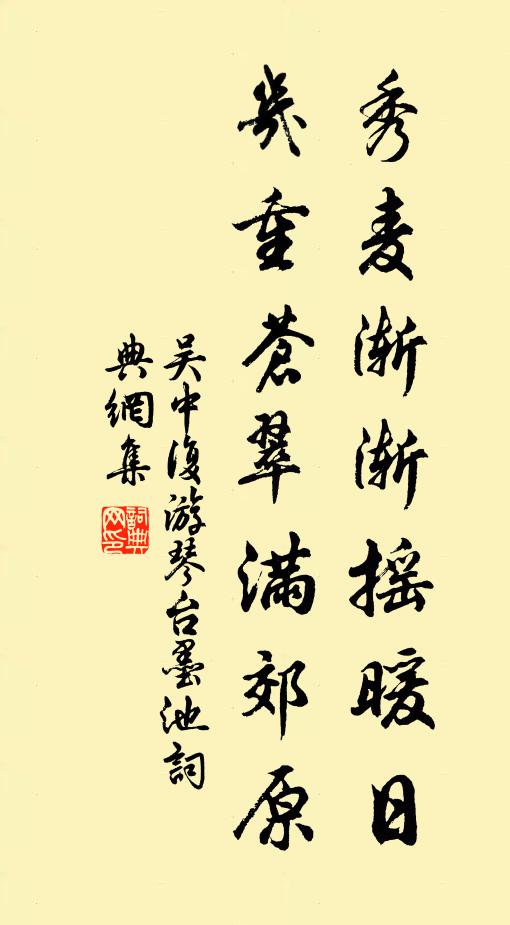 秀麦渐渐摇暖日
几重苍翠满郊原
吴中復游琴台墨池詞
典網集
詞典网印